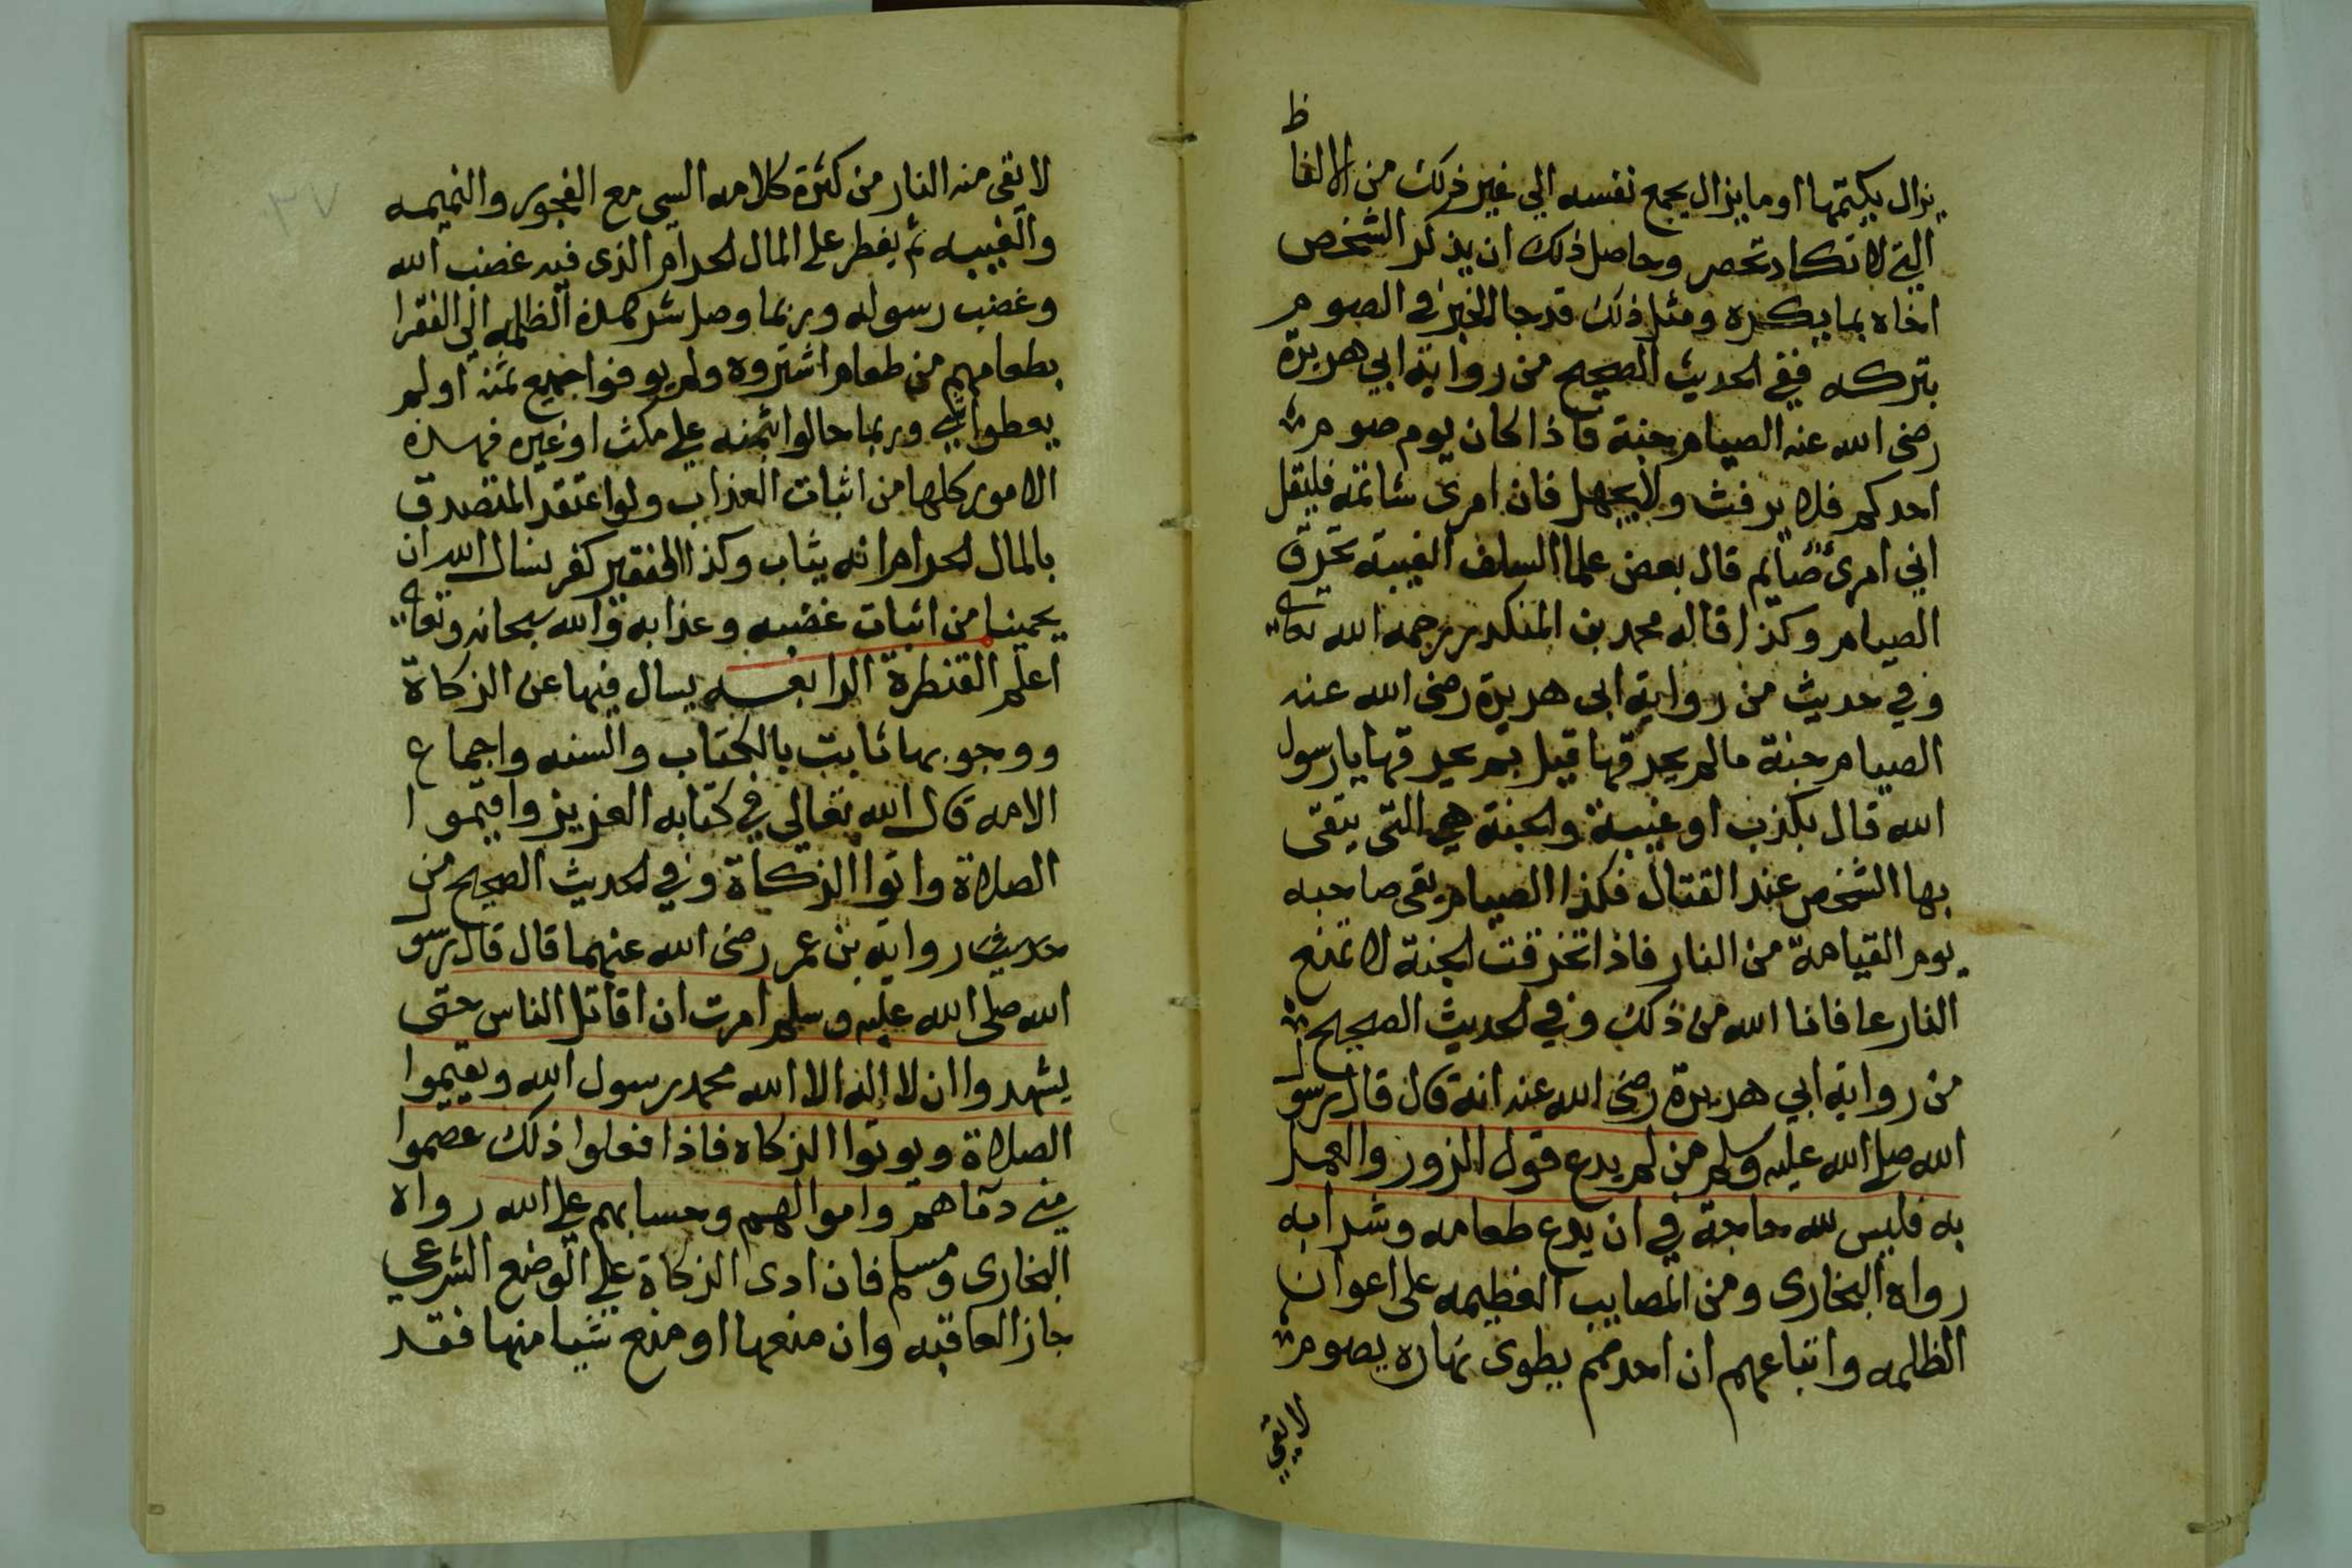 يزال يكتمها او ما يزال يجمع نفسه الي غير ذلك من الالفاظ
التي لا تكاد تحصر وحاصل ذلك ان يذكر الشخص
اخاه بما يكره ومثل ذلك قد جا الخبر في الصوم
بتركه ففي الحديث الصحيح من رواية ابي هريرة
رضي الله عنه الصيام جنة فاذا كان يوم صوم
احدكم فلا يرفث ولا يجهل فان امرئ شاتمه فليقل
اني امرئ صائم قال بعض علما السلف الغيبة تخرق
الصيام وكذا قاله محمد بن المنكدر رحمه الله تعالى
وفي حديث من رواية ابي هريرة رضي الله عنه
الصيام جنة مالم يخرقها قيل بم يخرقها يا رسول
الله قال بكذب او غيبة والجنة هي التي يتقى
بها الشخص عند القتال فكذا الصيام يقى صاحبه
يوم القيامة من النار فاذا تخرقت الجنة لا تمنع
النار عافانا الله من ذلك وفي الحديث الصحيح
من رواية ابي هريرة رضي الله عنه انه قال قال رسول
الله صلى الله عليه وسلم من لم يدع قول الزور والعمل
به فليس لله حاجة في ان يدع طعامه وشرابه
رواه البخاري ومن المصايب العظيمه على اعوان
الظلمه واتباعهم ان احدهم يطوى نهاره يصوم
لا يقي
٣٧
لا يقى منه النار من كثرة كلامه السي مع الفجور والنميمه
والغيبه ثم يفطر على المال الحرام الذي فيه غضب الله
وغضب رسوله وربما وصل شر هذه الظلمه الى الفقرا
بطعامهم من طعام اشتروه ولم يوفوا جميع ثمنه او لم
يعطوا شي وربما حالوا بثمنه على مكث او غيره فهذه
الامور كلها من اثبات العذاب ولو اعتقد المتصدق
بالمال الحرام انه يثاب وكذا الفقير كفر نسال الله ان
يحمينا من اثبات غضبه وعذابه والله سبحانه وتعالى
اعلم القنطرة الرابعه يسال فيها عن الزكاة
ووجوبها ثابت بالكتاب والسنه واجماع
الامه قال الله تعالي في كتابه العزيز واقيموا
الصلاة واتوا الزكاة وفي الحديث الصحيح من
حديث رواية بن عمر رضي الله عنهما قال قال رسول
الله صلى الله عليه وسلم امرت ان اقاتل الناس حتى
يشهدوا ان لا اله الا الله محمد رسول الله ويقيموا
الصلاة ويوتوا الزكاه فاذا فعلوا ذلك عصموا
مني دماهم واموالهم وحسابهم على الله رواه
البخاري ومسلم فان ادى الزكاة على الوضع الشرعي
جاز العاقبه وان منعها او منع شيا منها فقد